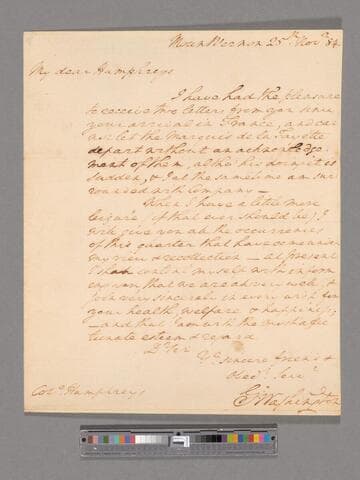 Mount Vernon 25th Novr 84.
My dear Humphreys
I have had the pleasure
to receive two letters from you since
your arrival in France, and can
not let the Marquis de la Fayette
depart without an acknowledg
ment of them, altho' his dep is
sudden, & I at the same time am sur
rounded with Company —
When I have a little more
leizure, (if that ever should be) I
will give you all the occurrences
of this quarter that have come under
my view & recollection — at present
I shall content myself with inform
ing you that we are all very well, &
join very sincerely in every wish for
your health, welfare & happiness,
— and that I am with the most affec
tionate esteem & regard
Dr Sir
Yr sincere friend &
Obedt Servt
G: Washington
Colo. Humphreys